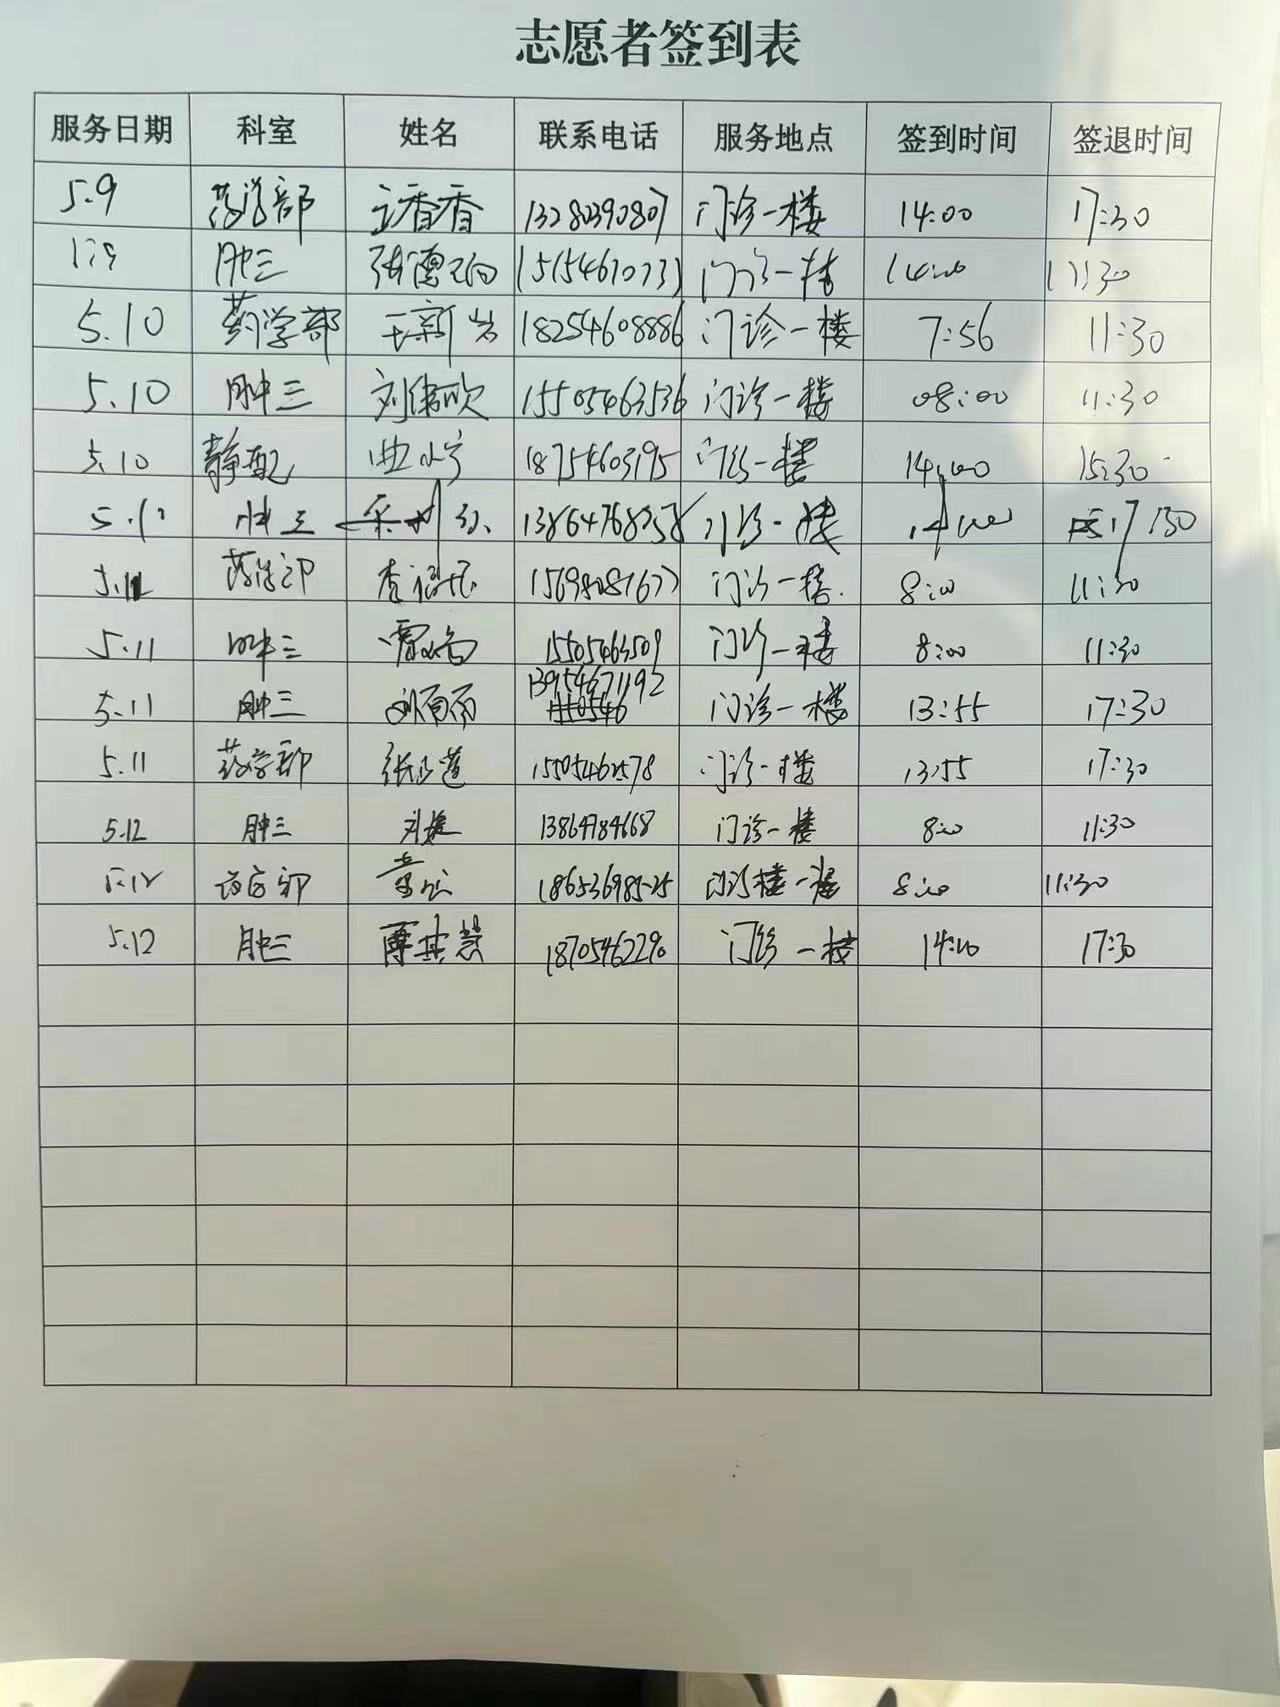 志愿者签到表
服务日期 科室 姓名 联系电话 服务地点 签到时间 签退时间
5.9 药学部 香香 13280390807 门诊一楼 14:00 17:30
肿三 门诊一楼 14:00 17:30
5.10 药学部 王新 18254608886 门诊一楼 7:56 11:30
5.10 肿三 刘伟欣 15505463536 门诊一楼 08:00 11:30
5.10 静配 曲小宁 18754603195 门诊一楼 14:00 15:30
肿三 门诊一楼 17:30
5.11 药学部 门诊一楼 8:00 11:30
5.11 肿三 15505463509 门诊一楼 8:00 11:30
5.11 肿三 13954671192 门诊一楼 13:55 17:30
5.11 药学部 15505462578 门诊一楼 13:55 17:30
5.12 肿三 13864784668 门诊一楼 8:00 11:30
5.12 药学部 18653698525 门诊楼一楼 8:00 11:30
5.12 肿三 18705462290 门诊一楼 14:00 17:30